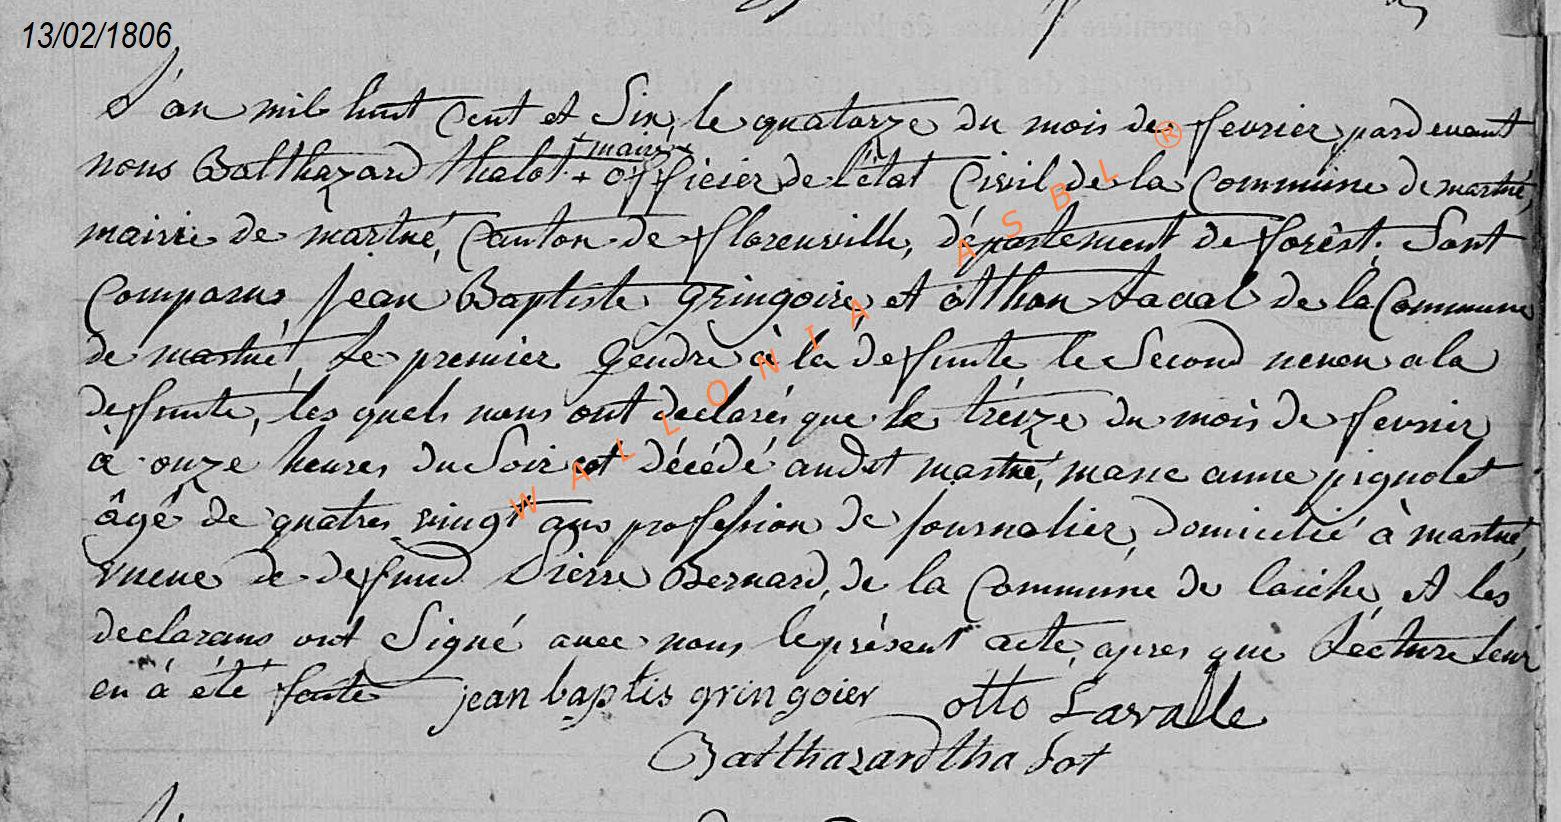 13/02/1806
L'an mil huit cent et Six, le quatorze du mois de fevrier pardevant
+ maire
nous Balthazard thalot + officier de l'état Civil de la Commune de martué,
mairie de martué, Canton de florenville, département de forêst. Sont
Comparus jean Baptiste gringoire, et otthon Laval de la Commune
de martué, Le premier gendre à la defunte le Second neveu a la
defunte, les quels nous ont declarés que le treize du mois de fevrier
à onze heures du Soir est décédé audit martué, marie anne pignolet
âgé de quatres vingt ans profession de journalier, domicilié à martué,
veuve de defund Pierre Bernard, de la Commune de laiche, et les
declarans ont Signé avec nous le présent acte, apres que Lecture leur
en à été faite jean baptis gringoier otto Lavalle
Balthazard thalot
WALLONIA ASBL ®